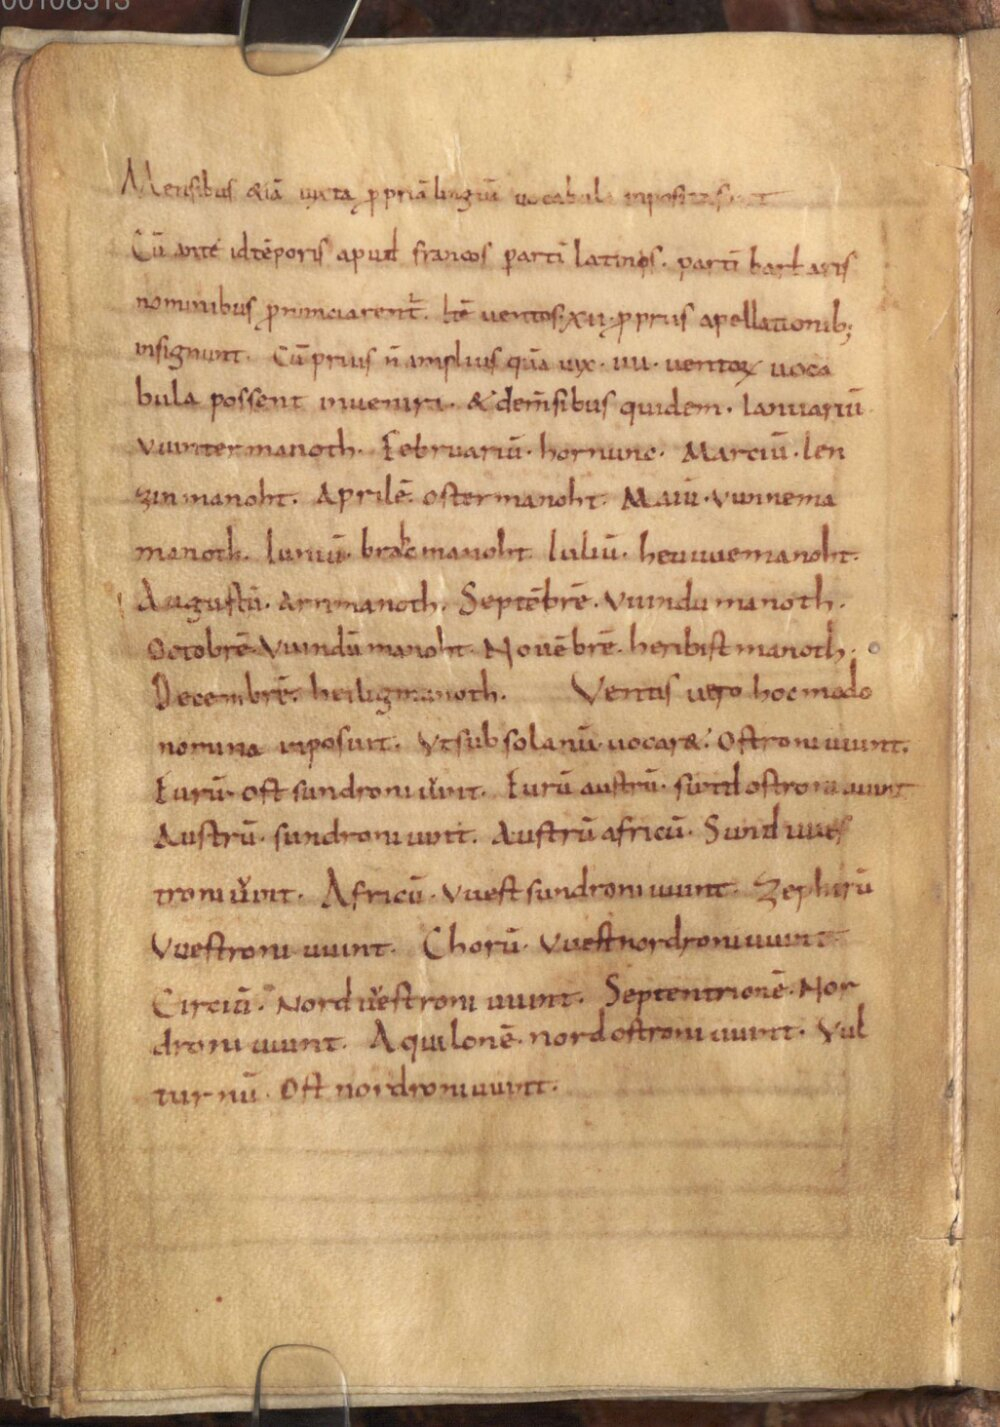 00108313
Mensibus &iā iuxta ꝓpriā linguā vocabula inposita sunt
Cū ante id tēporis apud francos partī latinos · partī barbaris
nominibus pronunciarent̄. Itē ventos · xii · ꝓprus apellationib;
insigniuit. Cū prius n̄ amplius quā vix · iiii · ventoꝝ uoca
bula possent inveniri · & de m̄sibus quidem · Ianuariū
vvinter manoth. Februariū · hornunc · Marciū · len
zin manoht. Aprilē. oster manoht. Maiū · vvinnema
manoth. Iuniū · brakmanoht Iuliū · heuuuemanoht.
Augustū · arnmanoth. Septēbrē · vvindu manoth.
Octobrē · Vvindū manoht. Novēbrē · heribist manoth.
Decembrē. heiligmanoth. Ventis uero hoc modo
nomina inposuit. Vt subsolanū uocar&. Ostroni uuint.
Eurū · ost sundroni uuint. Eurū austrū · sund ostroni uuint
Austrū · sundroni uuint. Austrū africū · Sund uues
troni uuint. Africū · vvest sundroni uuint. Zephirū
Vvestroni uuint. Chorū · Vvestnordroni uuint
Circiū. Nord vvestroni uuint. Septentrionē. Nor
droni uuint. Aquilonē · nord ostroni uuint. Vul
turnū. Ost nordroni uuint.